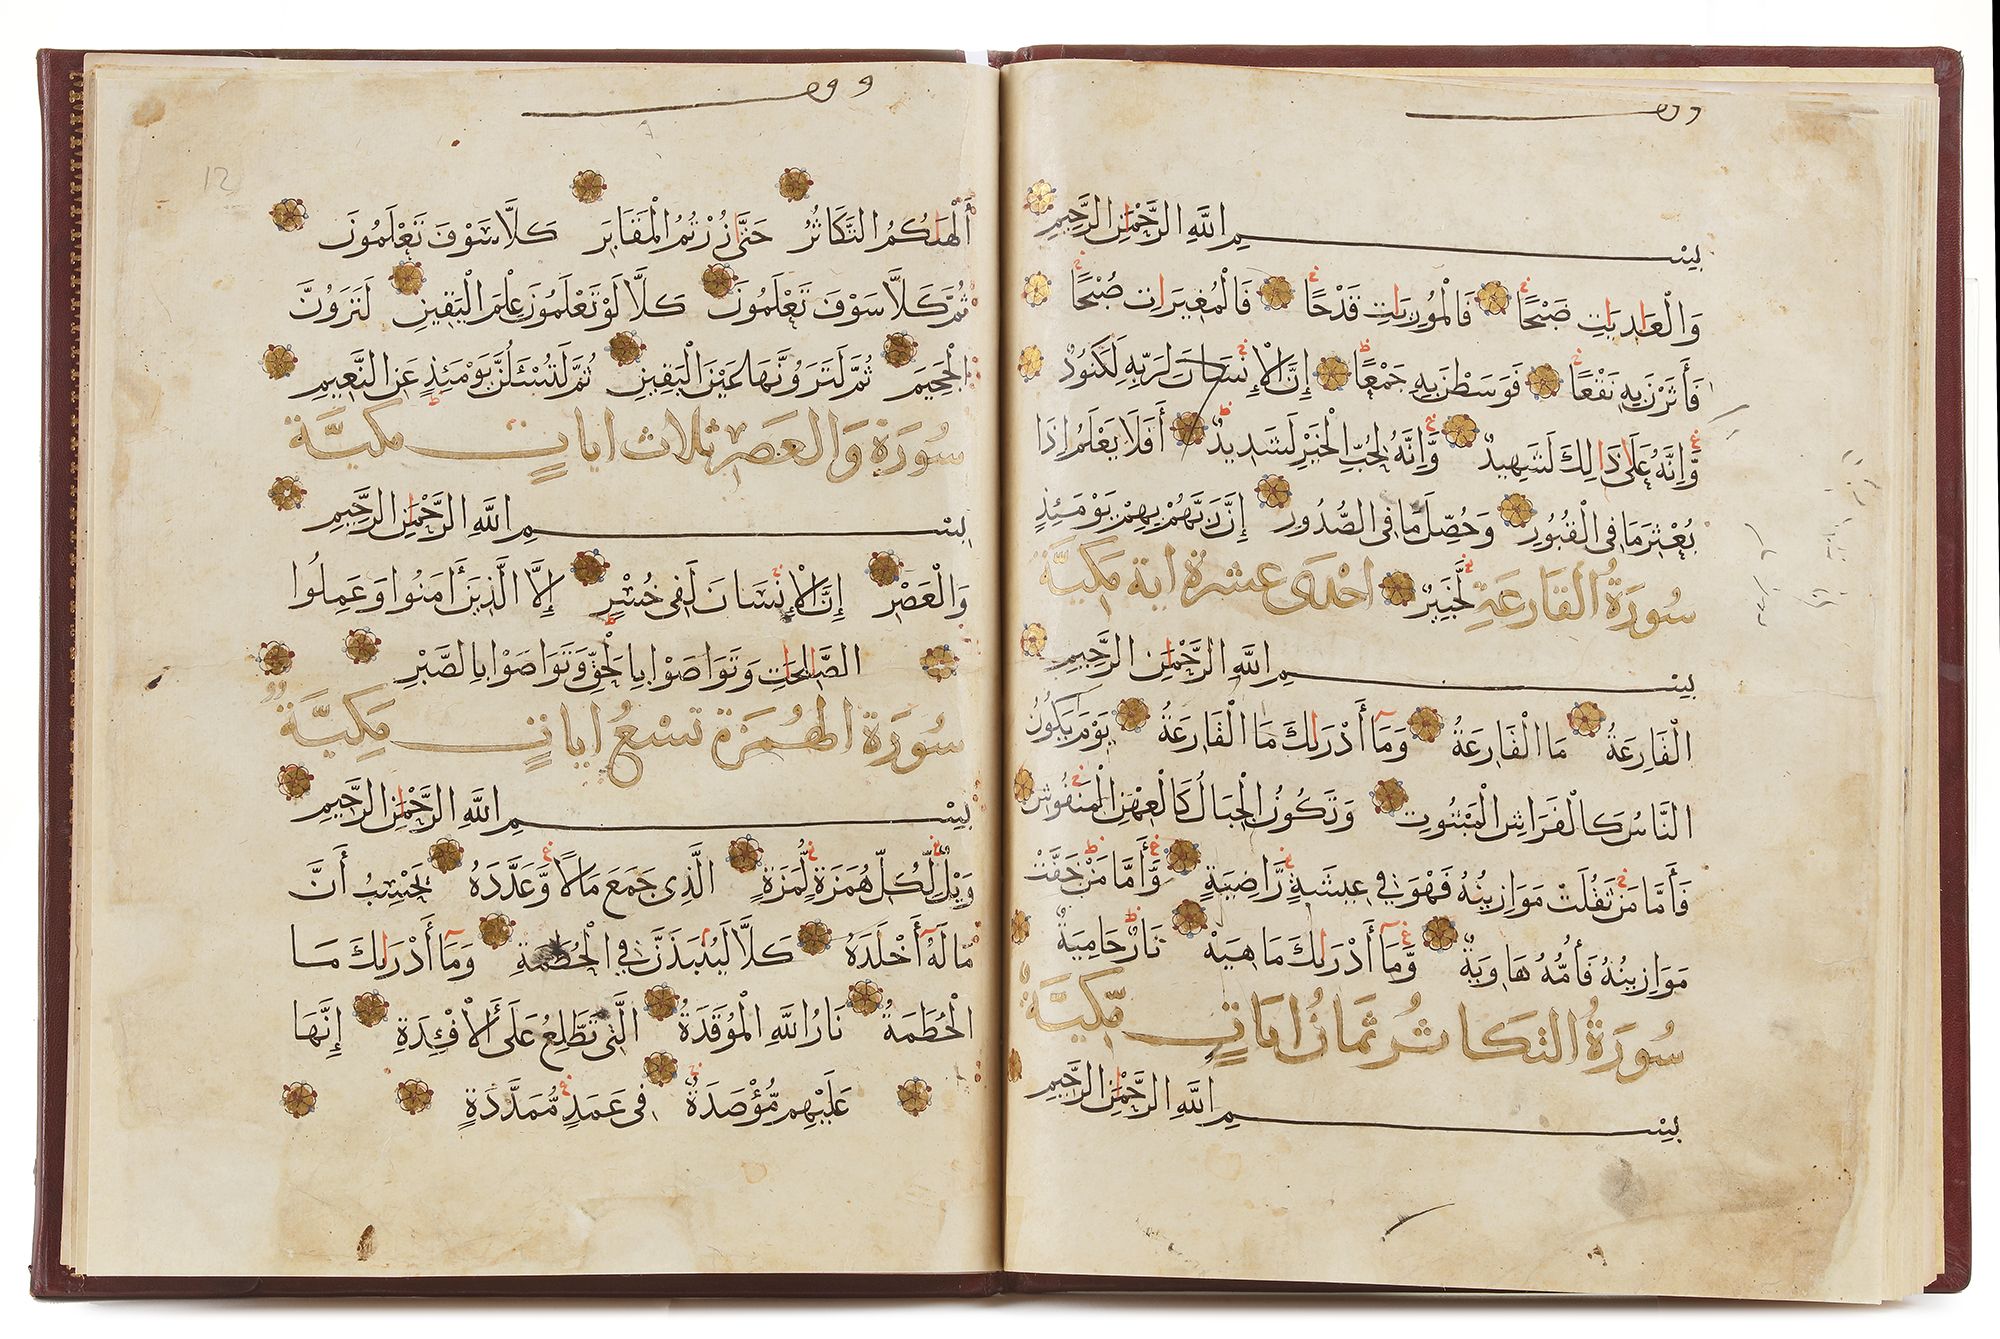 وقف
بسم الله الرحمن الرحيم
وَالْعَادِيَاتِ ضَبْحًا فَالْمُورِيَاتِ قَدْحًا فَالْمُغِيرَاتِ صُبْحًا
فَأَثَرْنَ بِهِ نَقْعًا فَوَسَطْنَ بِهِ جَمْعًا إِنَّ الْإِنْسَانَ لِرَبِّهِ لَكَنُودٌ
وَّإِنَّهُ عَلَى ذَالِكَ لَشَهِيدٌ وَّإِنَّهُ لِحُبِّ الْخَيْرِ لَشَدِيدٌ أَفَلَا يَعْلَمُ إِذَا
بُعْثِرَ مَا فِي الْقُبُورِ وَحُصِّلَ مَا فِي الصُّدُورِ إِنَّ رَبَّهُمْ بِهِمْ يَوْمَئِذٍ
لَّخَبِيرٌ سُورَةُ الْقَارِعَةِ احْدَى عَشْرَةَ اية مَكِيَّة
بسم الله الرَّحْمٰنِ الرَّحِيمِ
الْقَارِعَةُ مَا الْقَارِعَةُ وَمَا أَدْرٰىكَ مَا الْقَارِعَةُ يَوْمَ يَكُونُ
النَّاسُ كَالْفَرَاشِ الْمَبْثُوثِ وَتَكُونُ الْجِبَالُ كَالْعِهْنِ الْمَنْفُوشِ
فَأَمَّا مَنْ ثَقُلَتْ مَوَازِينُهُ فَهُوَ فِي عِيشَةٍ رَّاضِيَةٍ وَّأَمَّا مَنْ خَفَّتْ
مَوَازِينُهُ فَأُمُّهُ هَاوِيَةٌ وَّمَا أَدْرٰىكَ مَا هِيَهْ نَارٌ حَامِيَةٌ
سُورَةُ التَكَاثُر ثَمَان ايَاتٍ مَكِّيَّة
بسم الله الرَّحْمٰنِ الرَّحِيمِ
وقف
12
أَلْهٰىكُمُ التَّكَاثُرُ حَتَّى زُرْتُمُ الْمَقَابِرَ كَلَّا سَوْفَ تَعْلَمُونَ
ثُمَّ كَلَّا سَوْفَ تَعْلَمُونَ كَلَّا لَوْ تَعْلَمُونَ عِلْمَ الْيَقِينِ لَتَرَوُنَّ
الْجَحِيمَ ثُمَّ لَتَرَوُنَّهَا عَيْنَ الْيَقِينِ ثُمَّ لَتُسْئَلُنَّ يَوْمَئِذٍ عَنِ النَّعِيمِ
سُورَة وَالعَصْرِ ثلاث ايات مَكِيَّة
بسم الله الرَّحْمٰنِ الرَّحِيمِ
وَالْعَصْرِ إِنَّ الْإِنْسَانَ لَفِي خُسْرٍ إِلَّا الَّذِينَ أٰمَنُوا وَعَمِلُوا
الصَّالِحَاتِ وَتَوَاصَوْا بِالْحَقِّ وَتَوَاصَوْا بِالصَّبْرِ
سُورَة الهُمَزَة تسْعُ ايَاتٍ مَكِيَّة
بسم الله الرَّحْمٰنِ الرَّحِيمِ
وَيْلٌ لِّكُلِّ هُمَزَةٍ لُّمَزَةٍ الَّذِي جَمَعَ مَالًا وَّعَدَّدَهُ يَحْسِبُ أَنَّ
مَالَهُ أَخْلَدَهُ كَلَّا لَيُنْبَذَنَّ فِي الْحُطَمَةِ وَمَا أَدْرٰىكَ مَا
الْحُطَمَةُ نَارُ اللَّهِ الْمُوقَدَةُ الَّتِي تَطَّلِعُ عَلَى الْأَفْئِدَةِ إِنَّهَا
عَلَيْهِمْ مُّؤْصَدَةٌ فِي عَمَدٍ مُّمَدَّدَةٍ